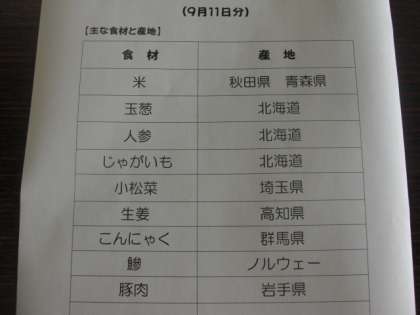 （９月１１日分）
【主な食材と産地】
食材 産地
米 秋田県 青森県
玉葱 北海道
人参 北海道
じゃがいも 北海道
小松菜 埼玉県
生姜 高知県
こんにゃく 群馬県
鰺 ノルウェー
豚肉 岩手県